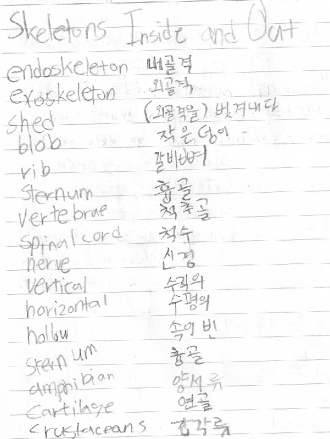 Skeletons Inside and Out
endoskeleton 내골격
exoskeleton 외골격
shed (외골격을) 벗겨내다
blob 작은 덩이
rib 갈비뼈
sternum 흉골
vertebrae 척추골
spinal cord 척수
nerve 신경
vertical 수직의
horizontal 수평의
hollow 속이 빈
sternum 흉골
amphibian 양서류
cartilage 연골
crustaceans 갑각류